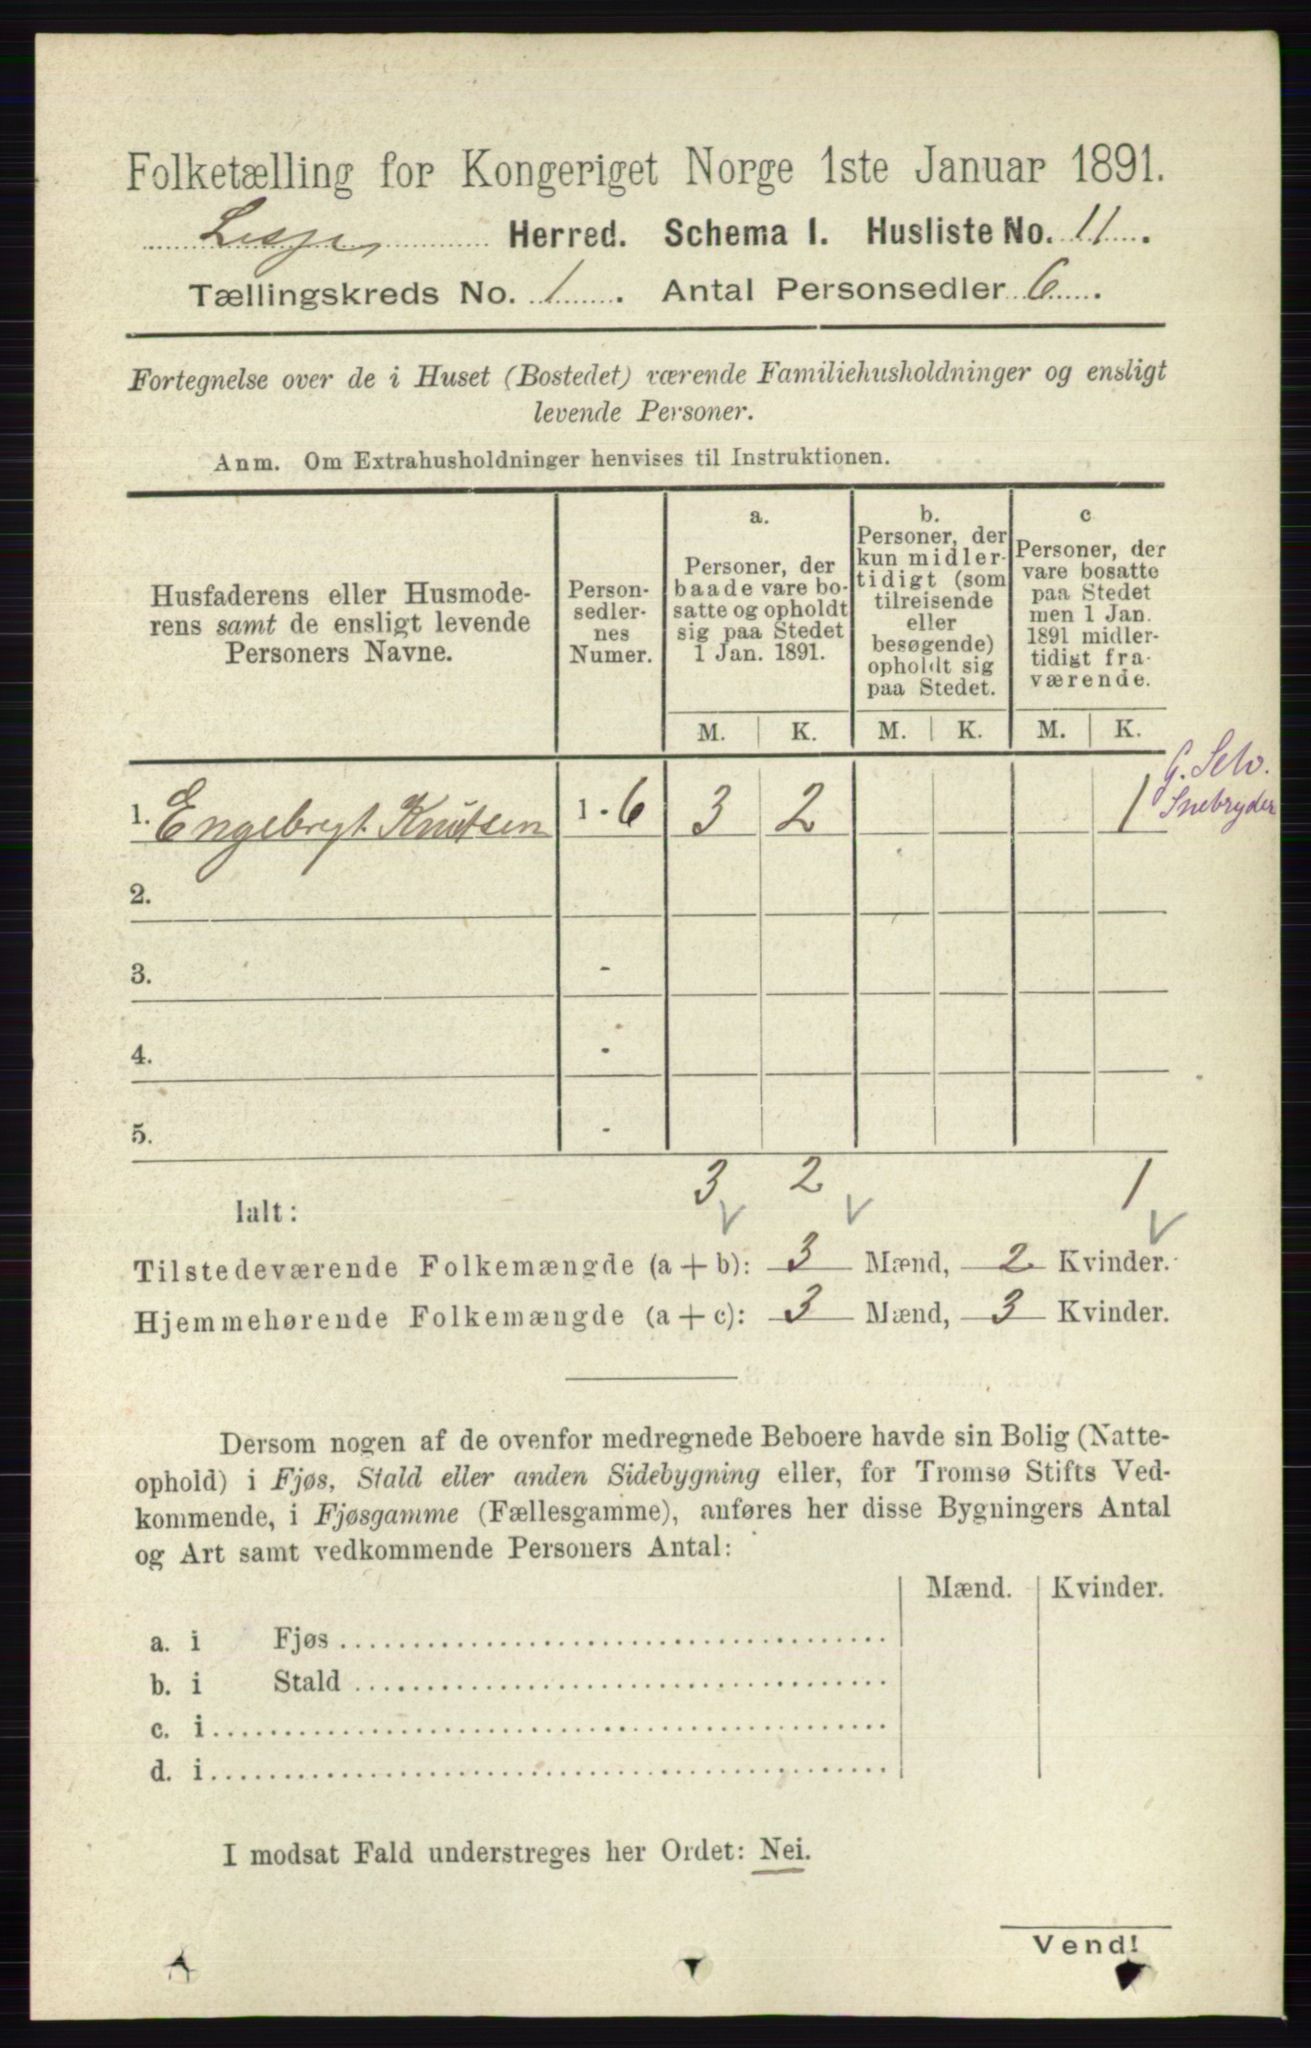 Folketælling for Kongeriget Norge 1ste Januar 1891.
Lesje Herred. Schema I. Husliste No. 11.
Tællingskreds No. 1. Antal Personsedler 6.
Fortegnelse over de i Huset (Bostedet) værende Familiehusholdninger og ensligt
levende Personer.
Anm. Om Extrahusholdninger henvises til Instruktionen.
Husfaderens eller Husmode-
rens samt de ensligt levende
Personers Navne.
Person-
sedler-
nes
Numer.
a.
Personer, der
baade vare bo-
satte og opholdt
sig paa Stedet
1 Jan. 1891.
b.
Personer, der
kun midler-
tidigt (som
tilreisende
eller
besøgende)
opholdt sig
paa Stedet.
c
Personer, der
vare bosatte
paa Stedet
men 1 Jan.
1891 midler-
tidigt fra-
værende.
M. K. M. K. M. K.
1. Engebregt Knutsen 1 - 6 3 2 1
Snebryder
2.
3. -
4. -
5. -
3 2 1
Ialt:
Tilstedeværende Folkemængde (a + b): 3 Mænd, 2 Kvinder.
Hjemmehørende Folkemængde (a + c): 3 Mænd, 3 Kvinder.
Dersom nogen af de ovenfor medregnede Beboere havde sin Bolig (Natte-
ophold) i Fjøs, Stald eller anden Sidebygning eller, for Tromsø Stifts Ved-
kommende, i Fjøsgamme (Fællesgamme), anføres her disse Bygningers Antal
og Art samt vedkommende Personers Antal:
Mænd. Kvinder.
a. i Fjøs
b. i Stald
c. i
d. i
I modsat Fald understreges her Ordet: Nei.
Vend!